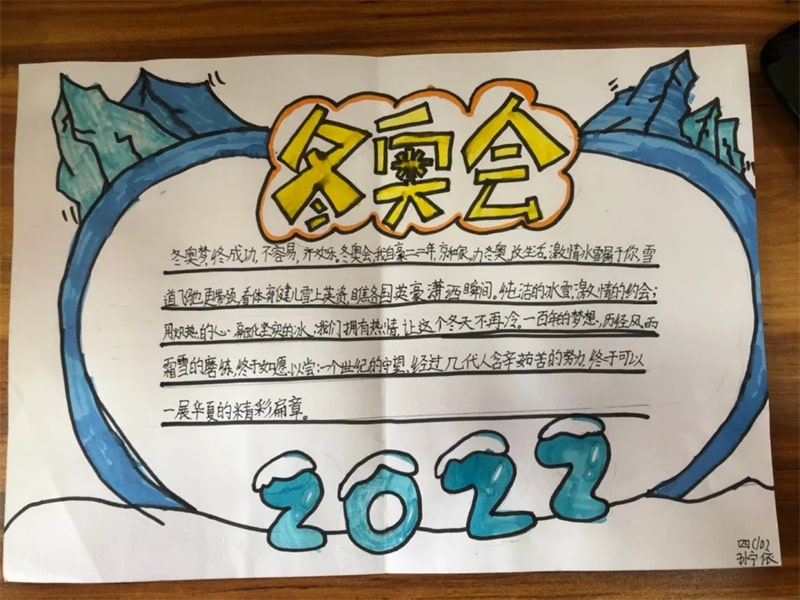 冬奥会
冬奥梦,终成功,不容易,齐欢乐。冬奥会,我自豪,二二年,京和家,办冬奥,改生活。激情冰雪属于你,雪
道飞驰更带领,看体育健儿雪上英资,瞧各国英豪潇洒瞬间。纯洁的冰雪,激情的约会;
用炽热的心,融化坚实的冰,我们拥有热情,让这个冬天不再冷。一百年的梦想、历经风雨
霜雪的磨练,终于如愿以尝;一个世纪的守望、经过几代人含辛茹苦的努力,终于可以
一展华夏的精彩扁章。
2022
四(1)02
孙宁依